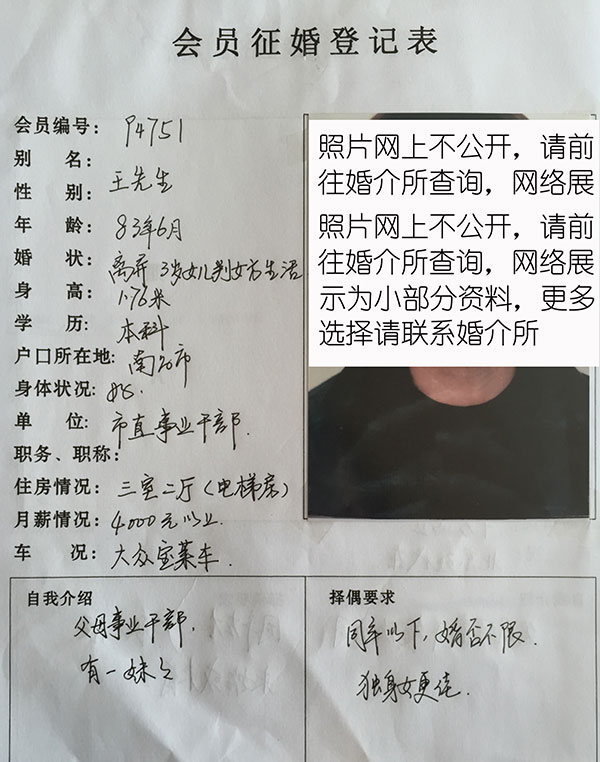 会员征婚登记表
会员编号：P4751
别　名：王先生
性　别：
年　龄：83年6月
婚　状：离异 3岁女儿判女方生活
身　高：1.76米
学　历：本科
户口所在地：南 市
身体状况：好.
单　位：市直事业干部.
职务、职称：
住房情况：三室二厅（电梯房）
月薪情况：4000元以上.
车　况：大众宝莱车.
照片网上不公开，请前
往婚介所查询，网络展
照片网上不公开，请前
往婚介所查询，网络展
示为小部分资料，更多
选择请联系婚介所
自我介绍
父母事业干部.
有一妹妹
择偶要求
同年以下，婚否不限.
独身女更佳.